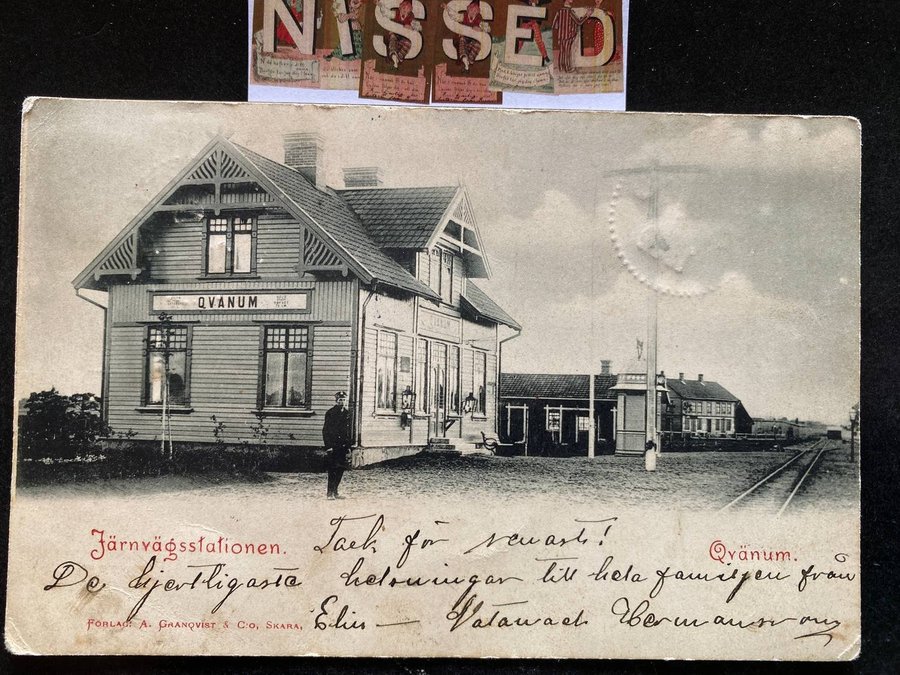 NISSED
QVÄNUM
Järnvägsstationen. Tack för senast! Qvänum.
De hjertligaste helsningar till hela familjen från
FÖRLAG: A. GRANQVIST & C:O, SKARA, Elis — Hermansson